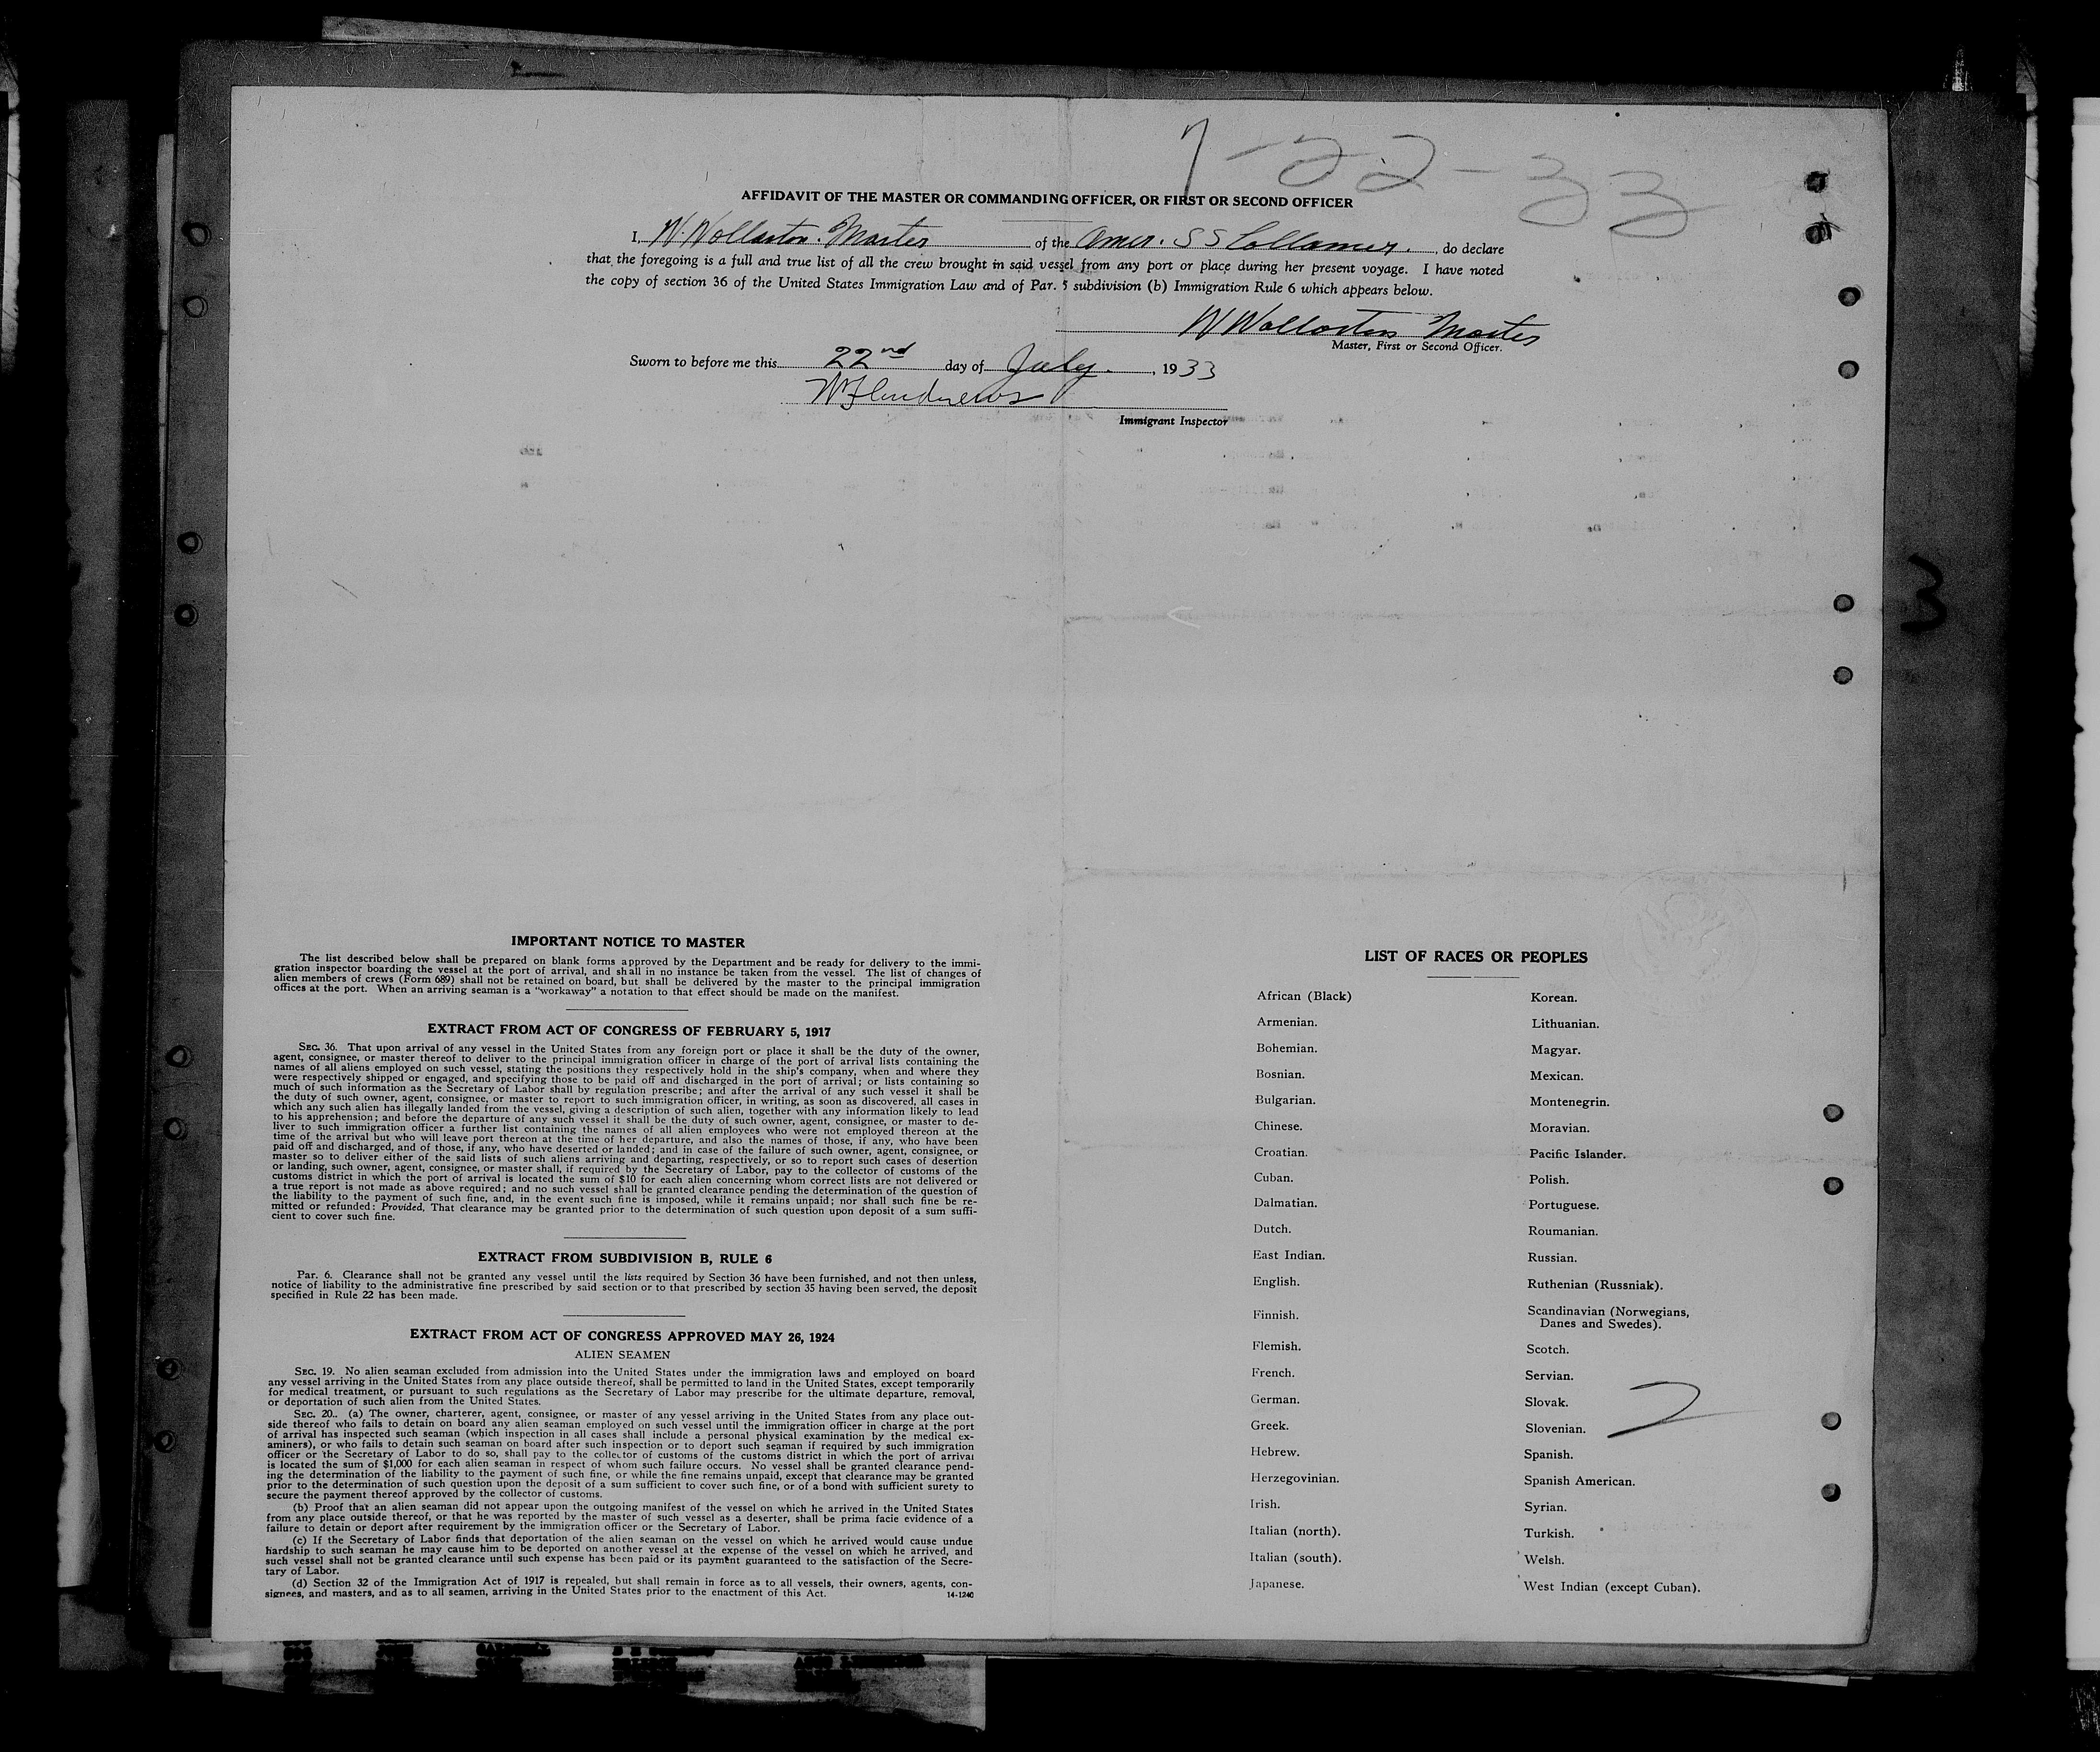 7-22-33
AFFIDAVIT OF THE MASTER OR COMMANDING OFFICER, OR FIRST OR SECOND OFFICER
I, W. Wollaston. Master of the Amer. SS Collamer. , do declare
that the foregoing is a full and true list of all the crew brought in said vessel from any port or place during her present voyage. I have noted
the copy of section 36 of the United States Immigration Law and of Par. 5 subdivision (b) Immigration Rule 6 which appears below.
W Wollaston Master
Master, First or Second Officer.
Sworn to before me this 22nd day of July. , 1933
Immigrant Inspector
3
IMPORTANT NOTICE TO MASTER
The list described below shall be prepared on blank forms approved by the Department and be ready for delivery to the immi-
gration inspector boarding the vessel at the port of arrival, and shall in no instance be taken from the vessel. The list of changes of
alien members of crews (Form 689) shall not be retained on board, but shall be delivered by the master to the principal immigration
offices at the port. When an arriving seaman is a "workaway" a notation to that effect should be made on the manifest.
EXTRACT FROM ACT OF CONGRESS OF FEBRUARY 5, 1917
SEC. 36. That upon arrival of any vessel in the United States from any foreign port or place it shall be the duty of the owner,
agent, consignee, or master thereof to deliver to the principal immigration officer in charge of the port of arrival lists containing the
names of all aliens employed on such vessel, stating the positions they respectively hold in the ship's company, when and where they
were respectively shipped or engaged, and specifying those to be paid off and discharged in the port of arrival; or lists containing so
much of such information as the Secretary of Labor shall by regulation prescribe; and after the arrival of any such vessel it shall be
the duty of such owner, agent, consignee, or master to report to such immigration officer, in writing, as soon as discovered, all cases in
which any such alien has illegally landed from the vessel, giving a description of such alien, together with any information likely to lead
to his apprehension; and before the departure of any such vessel it shall be the duty of such owner, agent, consignee, or master to de-
liver to such immigration officer a further list containing the names of all alien employees who were not employed thereon at the
time of the arrival but who will leave port thereon at the time of her departure, and also the names of those, if any, who have been
paid off and discharged, and of those, if any, who have deserted or landed; and in case of the failure of such owner, agent, consignee, or
master so to deliver either of the said lists of such aliens arriving and departing, respectively, or so to report such cases of desertion
or landing, such owner, agent, consignee, or master shall, if required by the Secretary of Labor, pay to the collector of customs of the
customs district in which the port of arrival is located the sum of $10 for each alien concerning whom correct lists are not delivered or
a true report is not made as above required; and no such vessel shall be granted clearance pending the determination of the question of
the liability to the payment of such fine, and, in the event such fine is imposed, while it remains unpaid; nor shall such fine be re-
mitted or refunded: Provided, That clearance may be granted prior to the determination of such question upon deposit of a sum suffi-
cient to cover such fine.
EXTRACT FROM SUBDIVISION B, RULE 6
Par. 6. Clearance shall not be granted any vessel until the lists required by Section 36 have been furnished, and not then unless,
notice of liability to the administrative fine prescribed by said section or to that prescribed by section 35 having been served, the deposit
specified in Rule 22 has been made.
EXTRACT FROM ACT OF CONGRESS APPROVED MAY 26, 1924
ALIEN SEAMEN
SEC. 19. No alien seaman excluded from admission into the United States under the immigration laws and employed on board
any vessel arriving in the United States from any place outside thereof, shall be permitted to land in the United States, except temporarily
for medical treatment, or pursuant to such regulations as the Secretary of Labor may prescribe for the ultimate departure, removal,
or deportation of such alien from the United States.
SEC. 20.. (a) The owner, charterer, agent, consignee, or master of any vessel arriving in the United States from any place out-
side thereof who fails to detain on board any alien seaman employed on such vessel until the immigration officer in charge at the port
of arrival has inspected such seaman (which inspection in all cases shall include a personal physical examination by the medical ex-
aminers), or who fails to detain such seaman on board after such inspection or to deport such seaman if required by such immigration
officer or the Secretary of Labor to do so, shall pay to the collector of customs of the customs district in which the port of arrival
is located the sum of $1,000 for each alien seaman in respect of whom such failure occurs. No vessel shall be granted clearance pend-
ing the determination of the liability to the payment of such fine, or while the fine remains unpaid, except that clearance may be granted
prior to the determination of such question upon the deposit of a sum sufficient to cover such fine, or of a bond with sufficient surety to
secure the payment thereof approved by the collector of customs.
(b) Proof that an alien seaman did not appear upon the outgoing manifest of the vessel on which he arrived in the United States
from any place outside thereof, or that he was reported by the master of such vessel as a deserter, shall be prima facie evidence of a
failure to detain or deport after requirement by the immigration officer or the Secretary of Labor.
(c) If the Secretary of Labor finds that deportation of the alien seaman on the vessel on which he arrived would cause undue
hardship to such seaman he may cause him to be deported on another vessel at the expense of the vessel on which he arrived, and
such vessel shall not be granted clearance until such expense has been paid or its payment guaranteed to the satisfaction of the Secre-
tary of Labor.
(d) Section 32 of the Immigration Act of 1917 is repealed, but shall remain in force as to all vessels, their owners, agents, con-
signees, and masters, and as to all seamen, arriving in the United States prior to the enactment of this Act.
14-1240
LIST OF RACES OR PEOPLES
African (Black)
Armenian.
Bohemian.
Bosnian.
Bulgarian.
Chinese.
Croatian.
Cuban.
Dalmatian.
Dutch.
East Indian.
English.
Finnish.
Flemish.
French.
German.
Greek.
Hebrew.
Herzegovinian.
Irish.
Italian (north).
Italian (south).
Japanese.
Korean.
Lithuanian.
Magyar.
Mexican.
Montenegrin.
Moravian.
Pacific Islander.
Polish.
Portuguese.
Roumanian.
Russian.
Ruthenian (Russniak).
Scandinavian (Norwegians,
Danes and Swedes).
Scotch.
Servian.
Slovak.
Slovenian.
Spanish.
Spanish American.
Syrian.
Turkish.
Welsh.
West Indian (except Cuban).
2